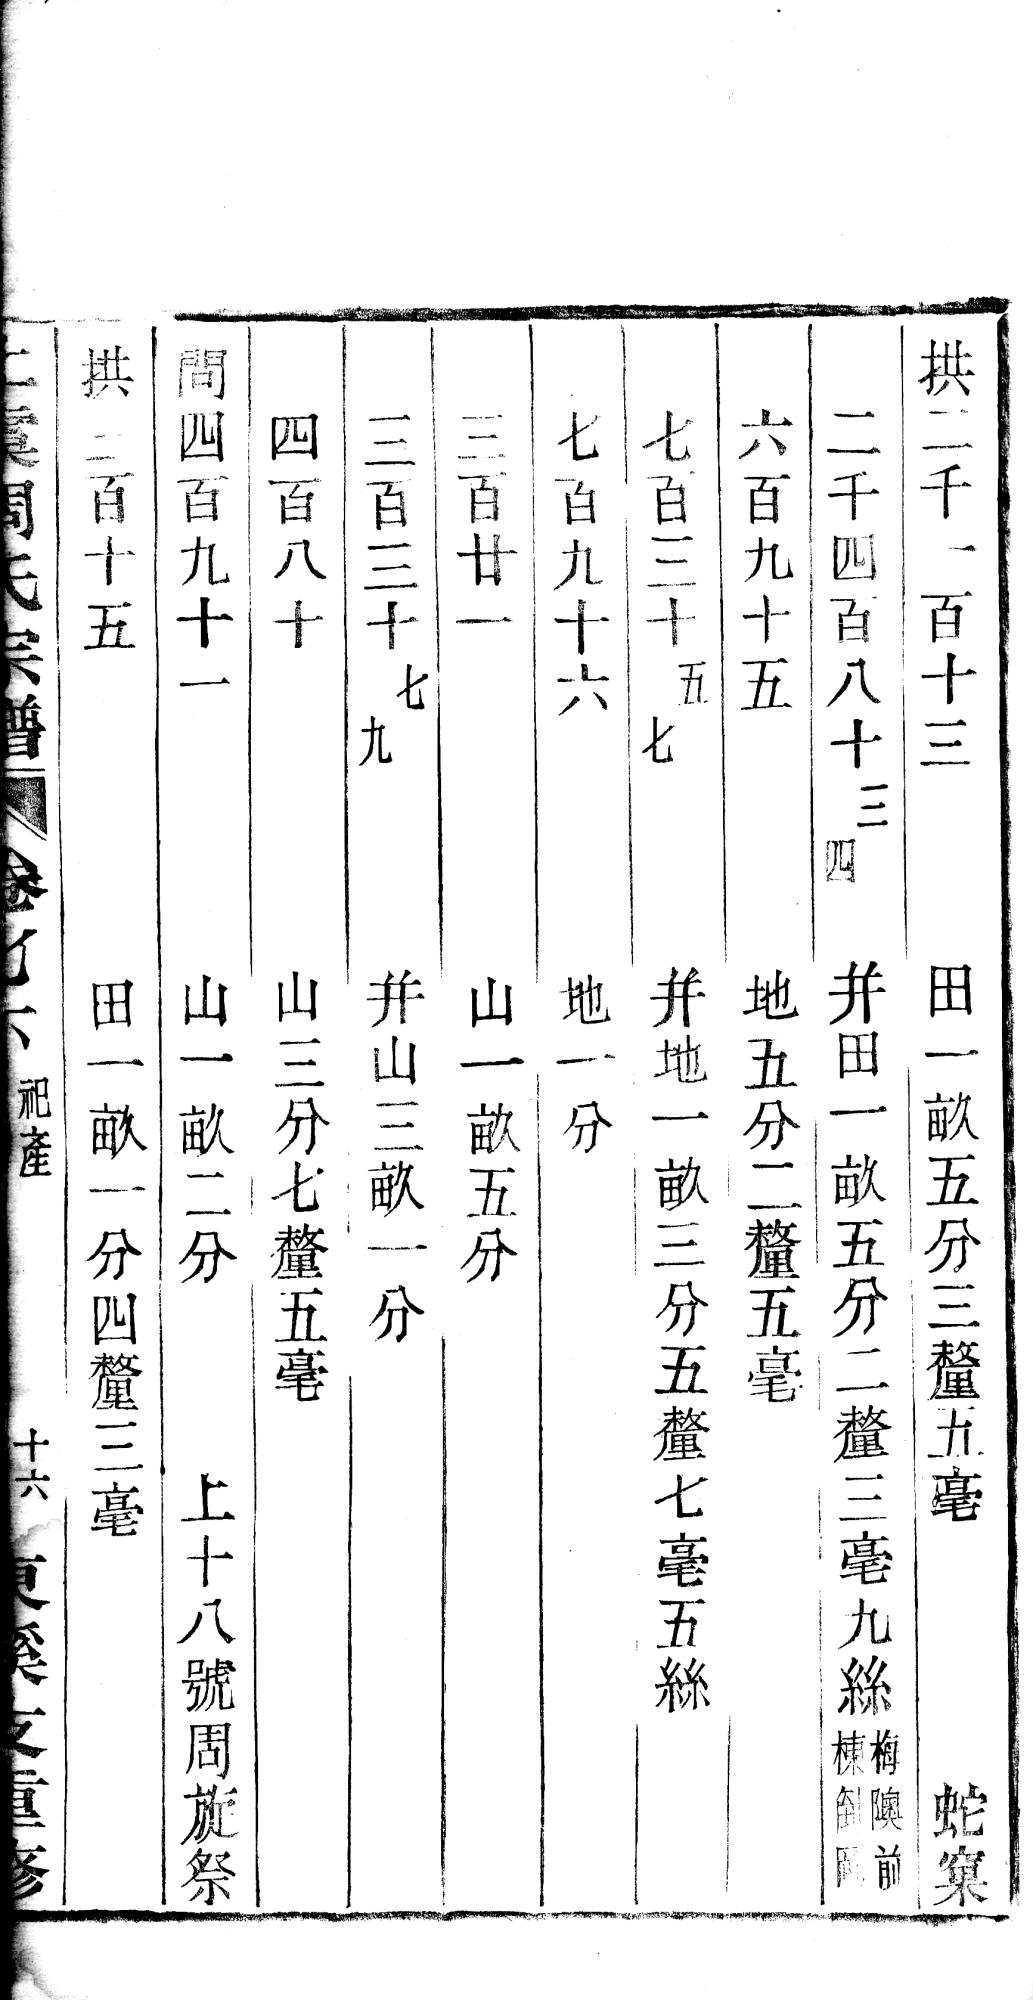 拱二千一百十三　田一畝五分三釐五毫　蛇窠
二千四百八十三四　并田一畝五分二釐三毫九絲梅隩前棟斜
六百九十五　地五分二釐五毫
七百三十五七　并地一畝三分五釐七毫五絲
七百九十六　地一分
三百廿一　山一畝五分
三百三十七九　并山三畝一分
四百八十　山三分七釐五毫
問四百九十一　山一畝二分　上十八號周旋祭
拱二百十五　田一畝一分四釐三毫
虞周氏宗譜　卷　六　祀產　十六　東溪支重修